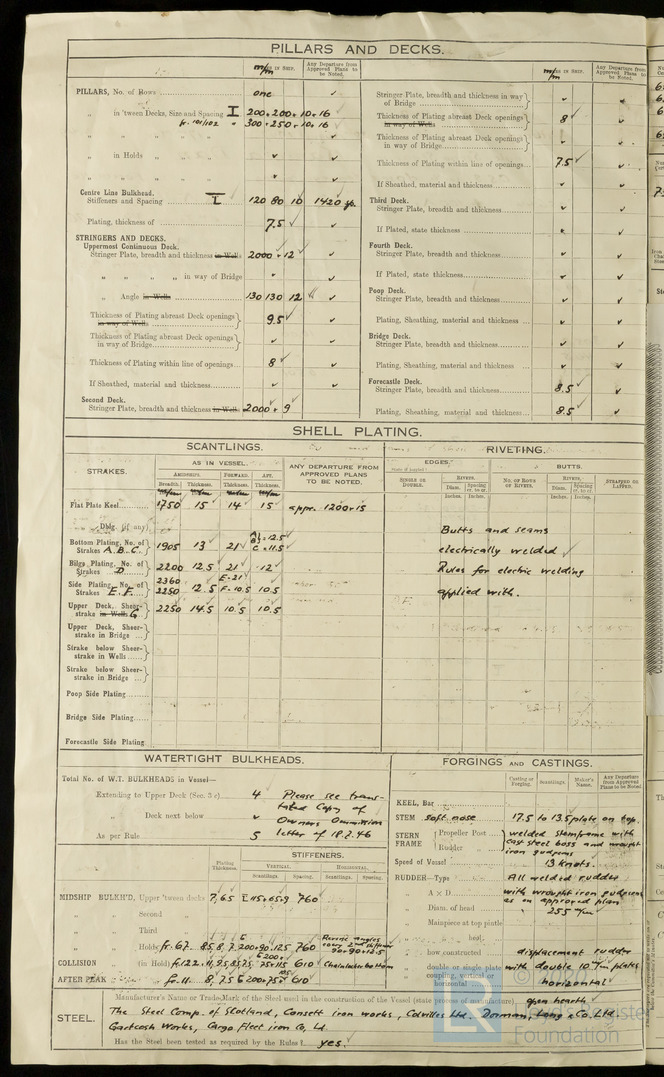 PILLARS AND DECKS.
m/m IN SHIP.
Any Departure from Approved Plans to be Noted.
PILLARS, No. of Rows one
„ in 'tween Decks, Size and Spacing I 200 × 200 × 10 × 16
fr. 101/102 „ 300 × 250 × 10 × 16
„ in Holds „ „
Centre Line Bulkhead.
Stiffeners and Spacing 120 80 10 1420
Plating, thickness of 7.5
STRINGERS AND DECKS.
Uppermost Continuous Deck.
Stringer Plate, breadth and thickness in Wells 2000 × 12
„ „ „ „ in way of Bridge
„ Angle in Wells 130 130 12
Thickness of Plating abreast Deck openings in way of Wells 9.5
Thickness of Plating abreast Deck openings in way of Bridge
Thickness of Plating within line of openings 8
If Sheathed, material and thickness
Second Deck.
Stringer Plate, breadth and thickness in Wells 2000 × 9
m/m IN SHIP.
Any Departure from Approved Plans to be Noted.
Stringer Plate, breadth and thickness in way of Bridge
Thickness of Plating abreast Deck openings in way of Wells 8
Thickness of Plating abreast Deck openings in way of Bridge
Thickness of Plating within line of openings 7.5
If Sheathed, material and thickness
Third Deck.
Stringer Plate, breadth and thickness
If Plated, state thickness
Fourth Deck.
Stringer Plate, breadth and thickness
If Plated, state thickness
Poop Deck.
Stringer Plate, breadth and thickness
Plating, Sheathing, material and thickness
Bridge Deck.
Stringer Plate, breadth and thickness
Plating, Sheathing, material and thickness
Forecastle Deck.
Stringer Plate, breadth and thickness 8.5
Plating, Sheathing, material and thickness 8.5
SHELL PLATING.
SCANTLINGS.
RIVETING.
STRAKES.
AS IN VESSEL.
ANY DEPARTURE FROM APPROVED PLANS TO BE NOTED.
EDGES.
BUTTS.
AMIDSHIPS. FORWARD. AFT.
Breadth. Thickness. Thickness. Thickness.
SINGLE OR DOUBLE.
RIVETS.
Diam. Spacing cr. to cr.
Inches. Inches.
NO. OF ROWS OF RIVETS.
RIVETS.
Diam. Spacing cr. to cr.
Inches. Inches.
STRAPPED OR LAPPED.
Flat Plate Keel 1750 15 14 15 appr. 1200 × 15
„ Dblg. (if any)
Bottom Plating, No. of Strakes A.B.C. 1905 13 21 A = 12.5 B C = 11.5
Bilge Plating, No. of Strakes D 2200 12.5 21 12
Side Plating, No. of Strakes E. F. 2360 2250 12.5 E-21 F-10.5 10.5
Upper Deck, Sheer-strake in Wells G 2250 14.5 10.5 10.5
Upper Deck, Sheer-strake in Bridge
Strake below Sheer-strake in Wells
Strake below Sheer-strake in Bridge
Poop Side Plating
Bridge Side Plating
Forecastle Side Plating
Butts and seams
electrically welded
Rules for electric welding
applied with.
WATERTIGHT BULKHEADS.
Total No. of W.T. BULKHEADS in Vessel—
Extending to Upper Deck (Sec. 3 c) 4
„ Deck next below
As per Rule 5
Please see translated Copy of Owners Ommission letter of 18.2.46
STIFFENERS.
Plating Thickness.
VERTICAL. HORIZONTAL.
Scantlings. Spacing. Scantlings. Spacing.
MIDSHIP BULKH'D, Upper 'tween decks 7, 6.5 760
„ Second „
„ Third „
„ Holds fr. 67 8.5, 8, 7 200×90×12.5 760
COLLISION „ (in Hold) fr. 122 610
AFTER PEAK „ fr. 11 8, 7.5 610
FORGINGS AND CASTINGS.
Casting or Forging. Scantlings. Maker's Name. Any Departure from Approved Plans to be Noted
KEEL, Bar
STEM soft nose 17.5 to 13.5 plate on top.
STERN FRAME { Propeller Post welded stemframe with
„ Rudder „ cast steel boss and wrought
iron gudgeons
Speed of Vessel 13 knots.
RUDDER—Type All welded rudder
„ A × D with wrought iron gudgeons
as on approved plan
„ Diam. of head 255 m/m
„ Mainpiece at top pintle
„ „ heel
„ how constructed displacement rudder
„ double or single plate with double 10 m/m plates
„ coupling, vertical or horizontal horizontal
STEEL.
Manufacturer's Name or Trade Mark of the Steel used in the construction of the Vessel (state process of manufacture) open hearth
The Steel Comp. of Scotland, Consett iron works, Colvilles Ltd. Dorman, Long & Co. Ltd.
Gartcosh Works, Cargo Fleet iron Co, Ld.
Has the Steel been tested as required by the Rules? yes.
© Lloyd's Register
Foundation